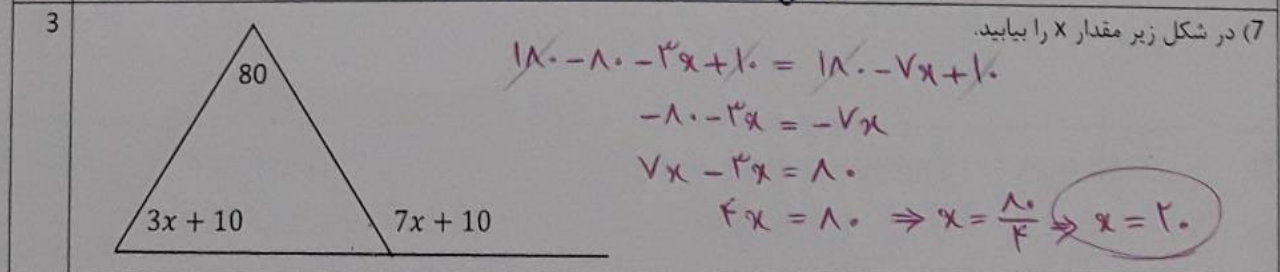 3
7) در شکل زیر مقدار x را بیابید.
80
3x + 10
7x + 10
۱۸۰-۸۰-۳x+۱۰ = ۱۸۰-۷x+۱۰
-۸۰-۳x = -۷x
۷x-۳x = ۸۰
۴x = ۸۰ ⇒ x = ۸۰/۴ ⇒ x = ۲۰